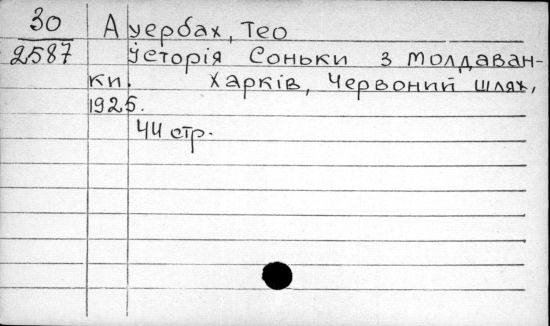 30
2587
Ауербах, Тео
Історія Соньки з Молдаван-
ки. Харків, Червоний шлях,
1925.
44 стр.